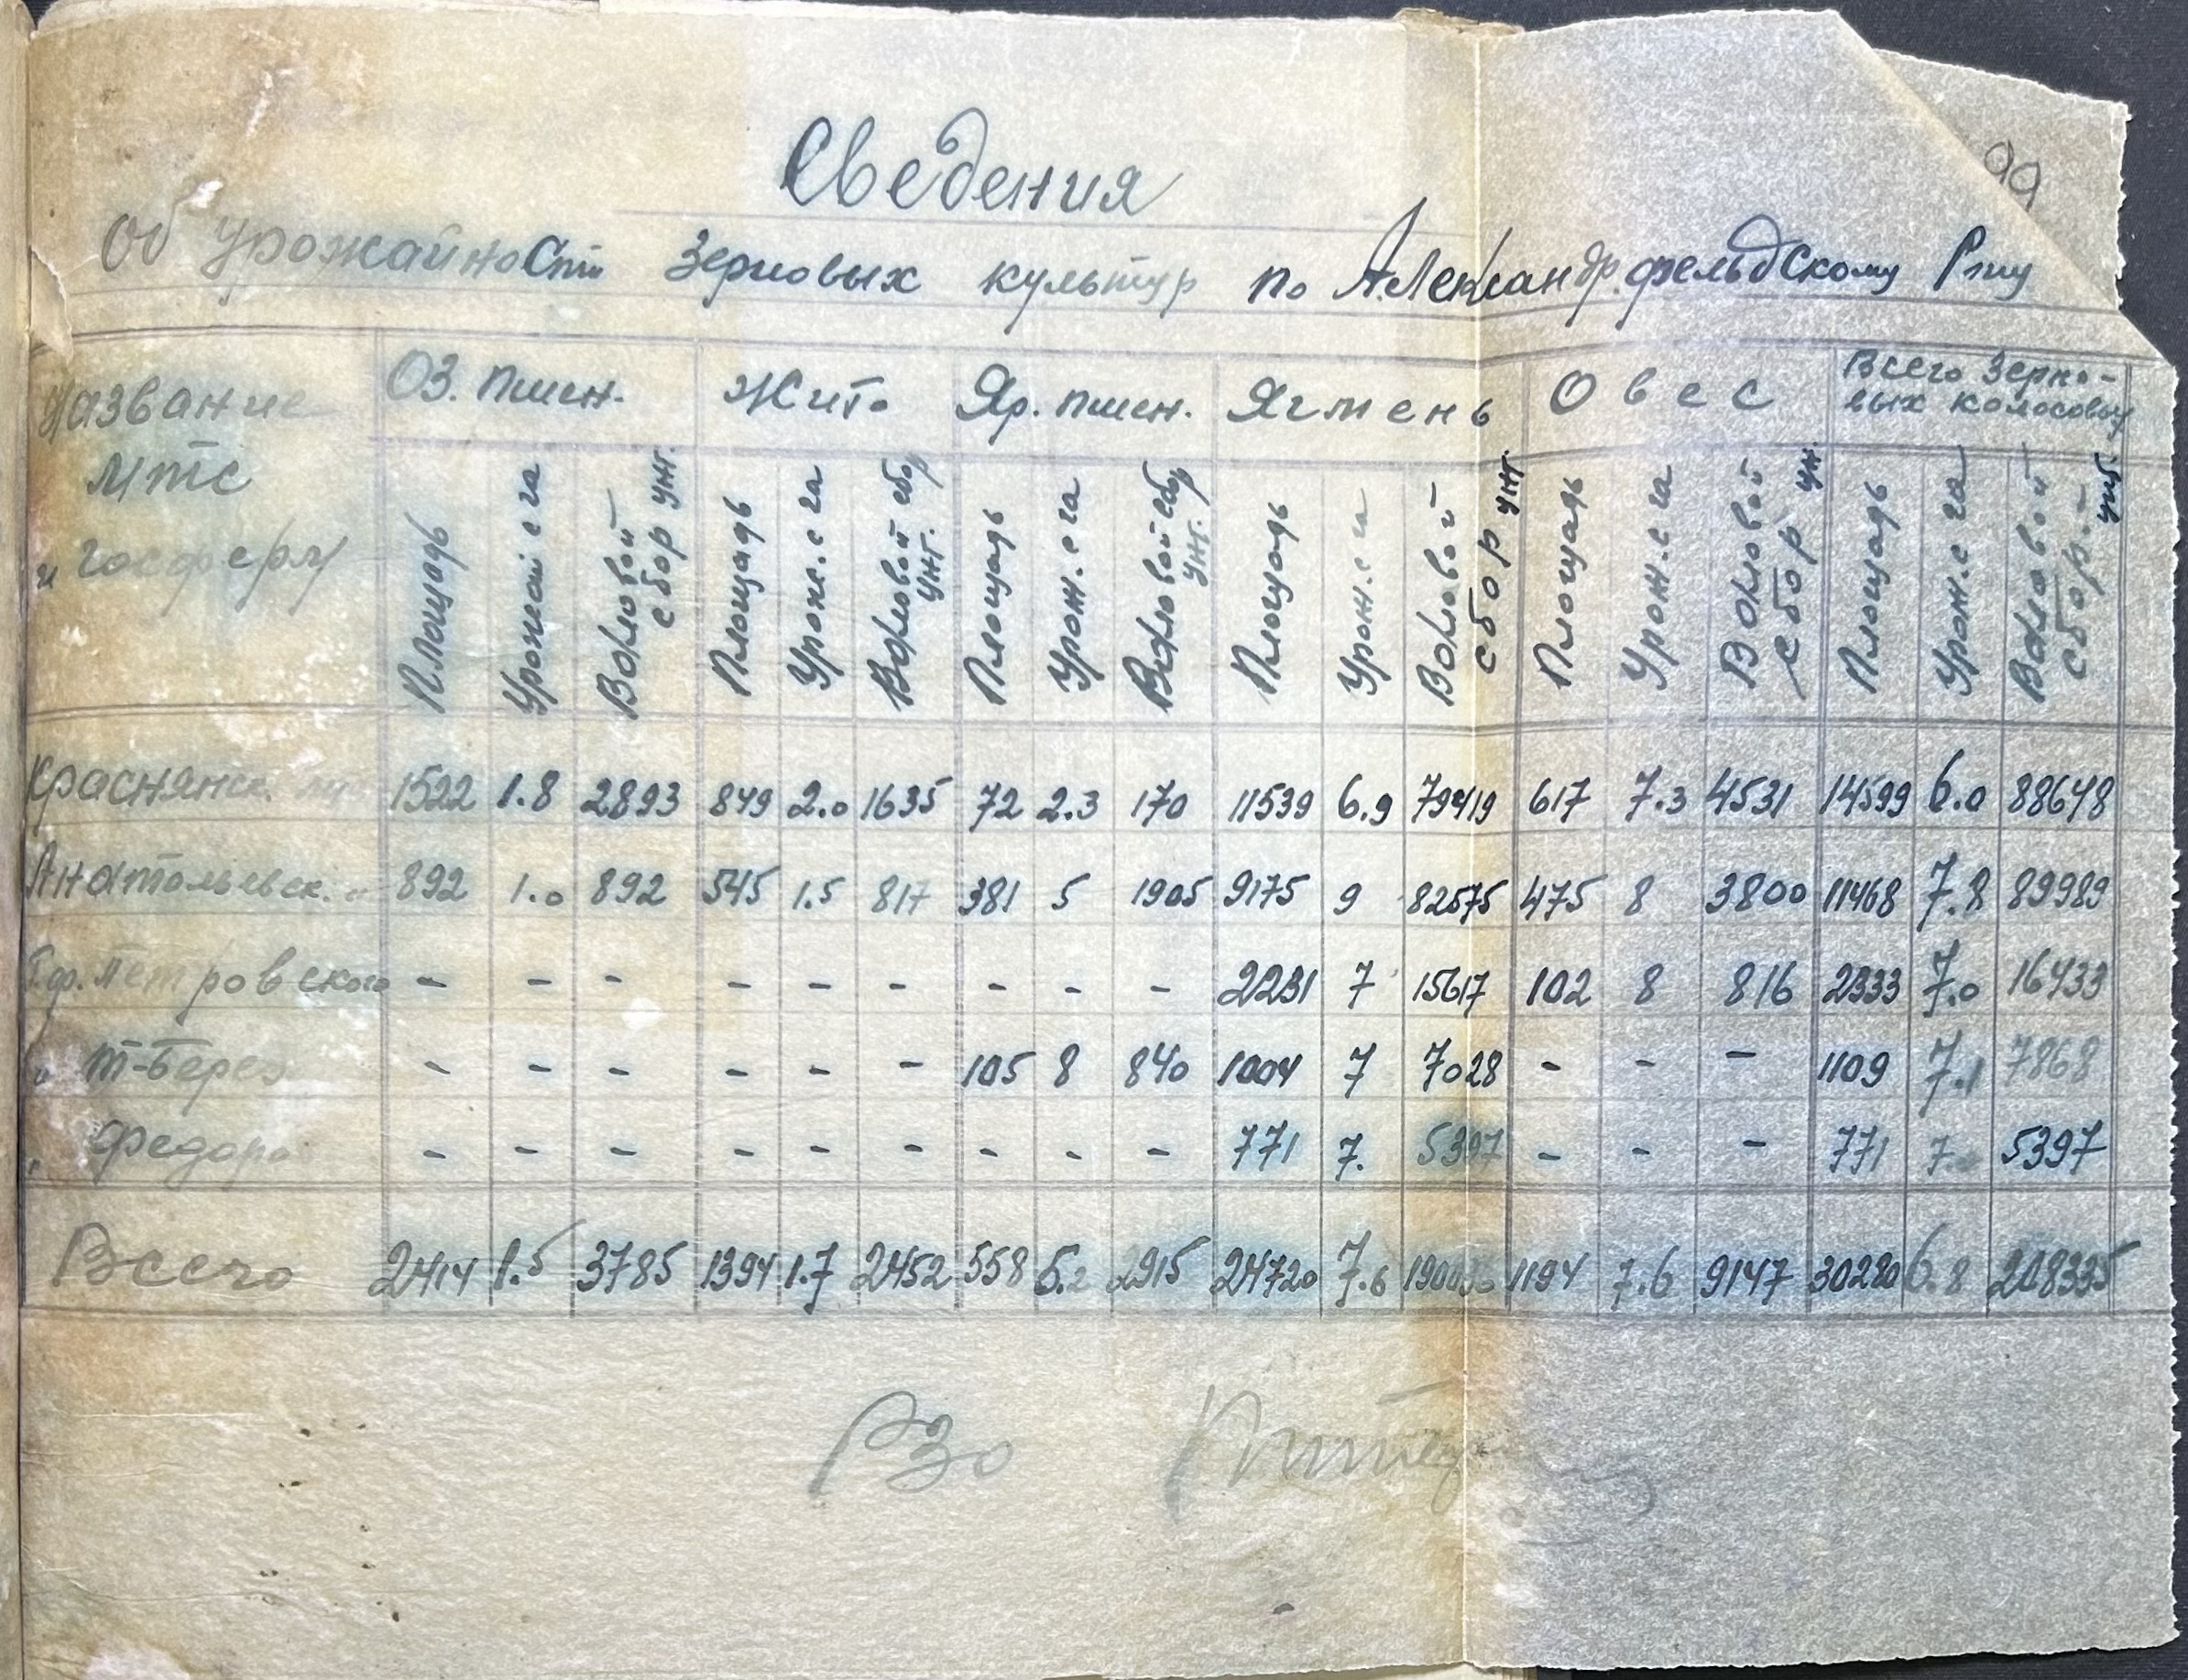 99
Сведения
Об урожайности Зерновых культур по Александрфельдскому Р-ну
Название МТС и госферм | Оз. пшен. | Жито | Яр. пшен. | Ячмень | Овес | Всего Зерновых колосовых
Площадь | Урожай с га | Воловой сбор | Площадь | Урож. с га | Воловой сбор | Площадь | Урож. с га | Воловой сбор | Площадь | Урож. с га | Воловой сбор | Площадь | Урож. с га | Воловой сбор | Площадь | Урож. с га | Воловой сбор
Краснянск. | 1522 | 1.8 | 2893 | 849 | 2.0 | 1635 | 72 | 2.3 | 170 | 11539 | 6.9 | 79419 | 617 | 7.3 | 4531 | 14599 | 6.0 | 88648
Анатольевск. | 892 | 1.0 | 892 | 545 | 1.5 | 817 | 381 | 5 | 1905 | 9175 | 9 | 82575 | 475 | 8 | 3800 | 11468 | 7.8 | 89989
Г.ф. Петровского | - | - | - | - | - | - | - | - | - | 2231 | 7 | 15617 | 102 | 8 | 816 | 2333 | 7.0 | 16433
" Т-Берез | - | - | - | - | - | - | 105 | 8 | 840 | 1004 | 7 | 7028 | - | - | - | 1109 | 7.1 | 7868
" Федоро | - | - | - | - | - | - | - | - | - | 771 | 7. | 5397 | - | - | - | 771 | 7 | 5397
Всего | 2414 | 1.5 | 3785 | 1394 | 1.7 | 2452 | 558 | 5.2 | 2915 | 24720 | 7.6 | 190036 | 1194 | 7.6 | 9147 | 30280 | 6.8 | 208335
РЗО